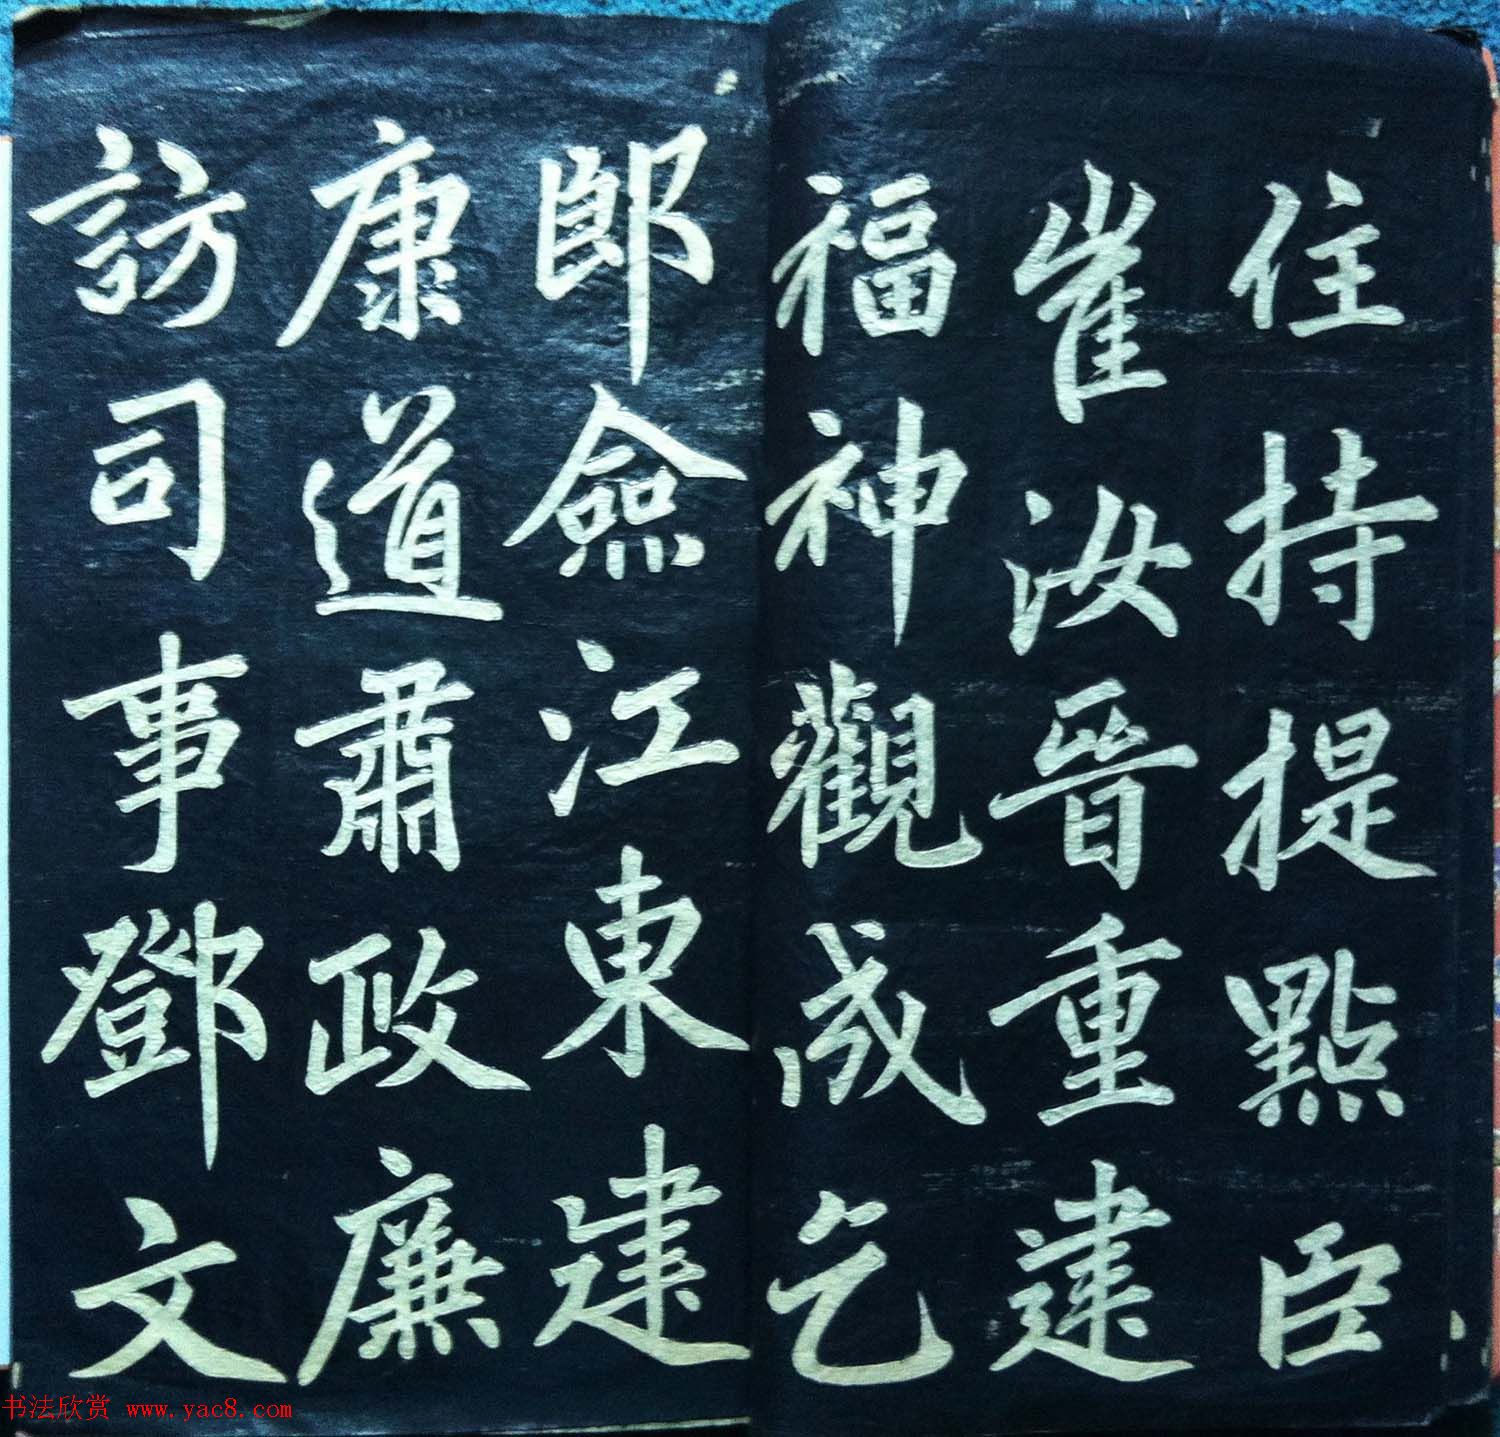 住持提點臣
崔汝晉重建
福神觀成乞
郎僉江東建
康道肅政廉
訪司事鄧文
书法欣赏 www.yac8.com